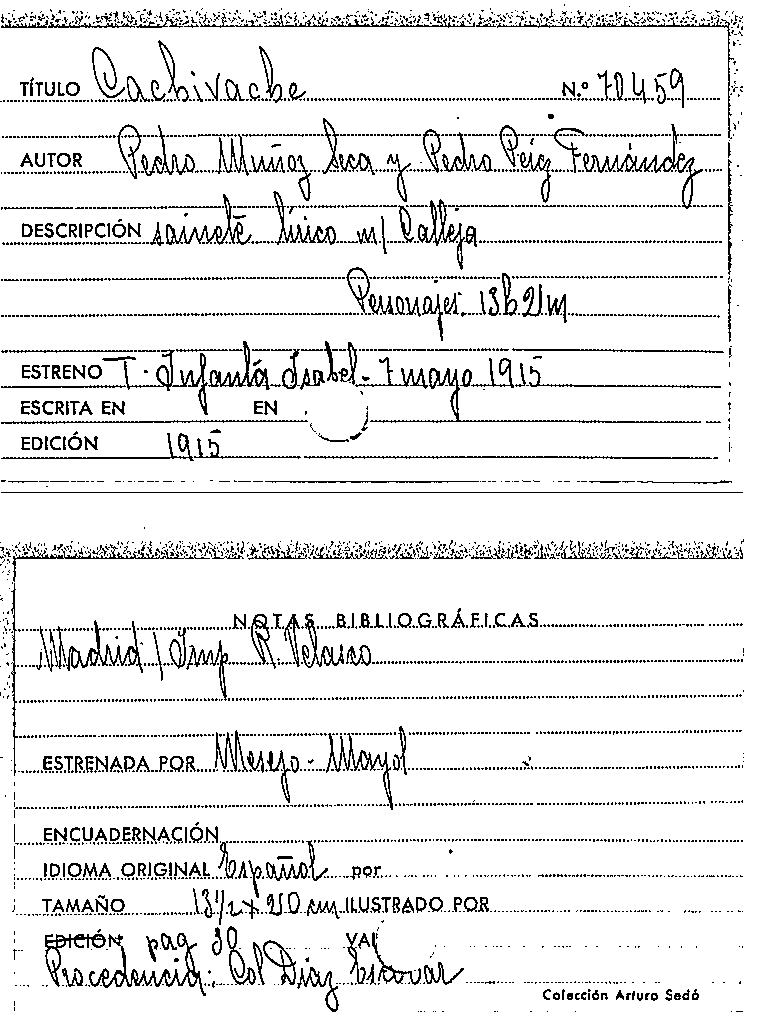 TÍTULO Cachivache N.º 70459
AUTOR Pedro Muñoz Seca y Pedro Pérez Fernández
DESCRIPCIÓN sainete lírico m/ Calleja
Personajes. 13h 2m
ESTRENO T. Infanta Isabel - 7 mayo 1915
ESCRITA EN EN
EDICIÓN 1915
NOTAS BIBLIOGRÁFICAS
Madrid / Imp R. Velasco
ESTRENADA POR Mesejo - Mayol
ENCUADERNACIÓN
IDIOMA ORIGINAL Español por
TAMAÑO 13 1/2 x 20 cm ILUSTRADO POR
EDICIÓN pag 30 VAL
Procedencia: Col Diaz Escovar
Colección Arturo Sedó